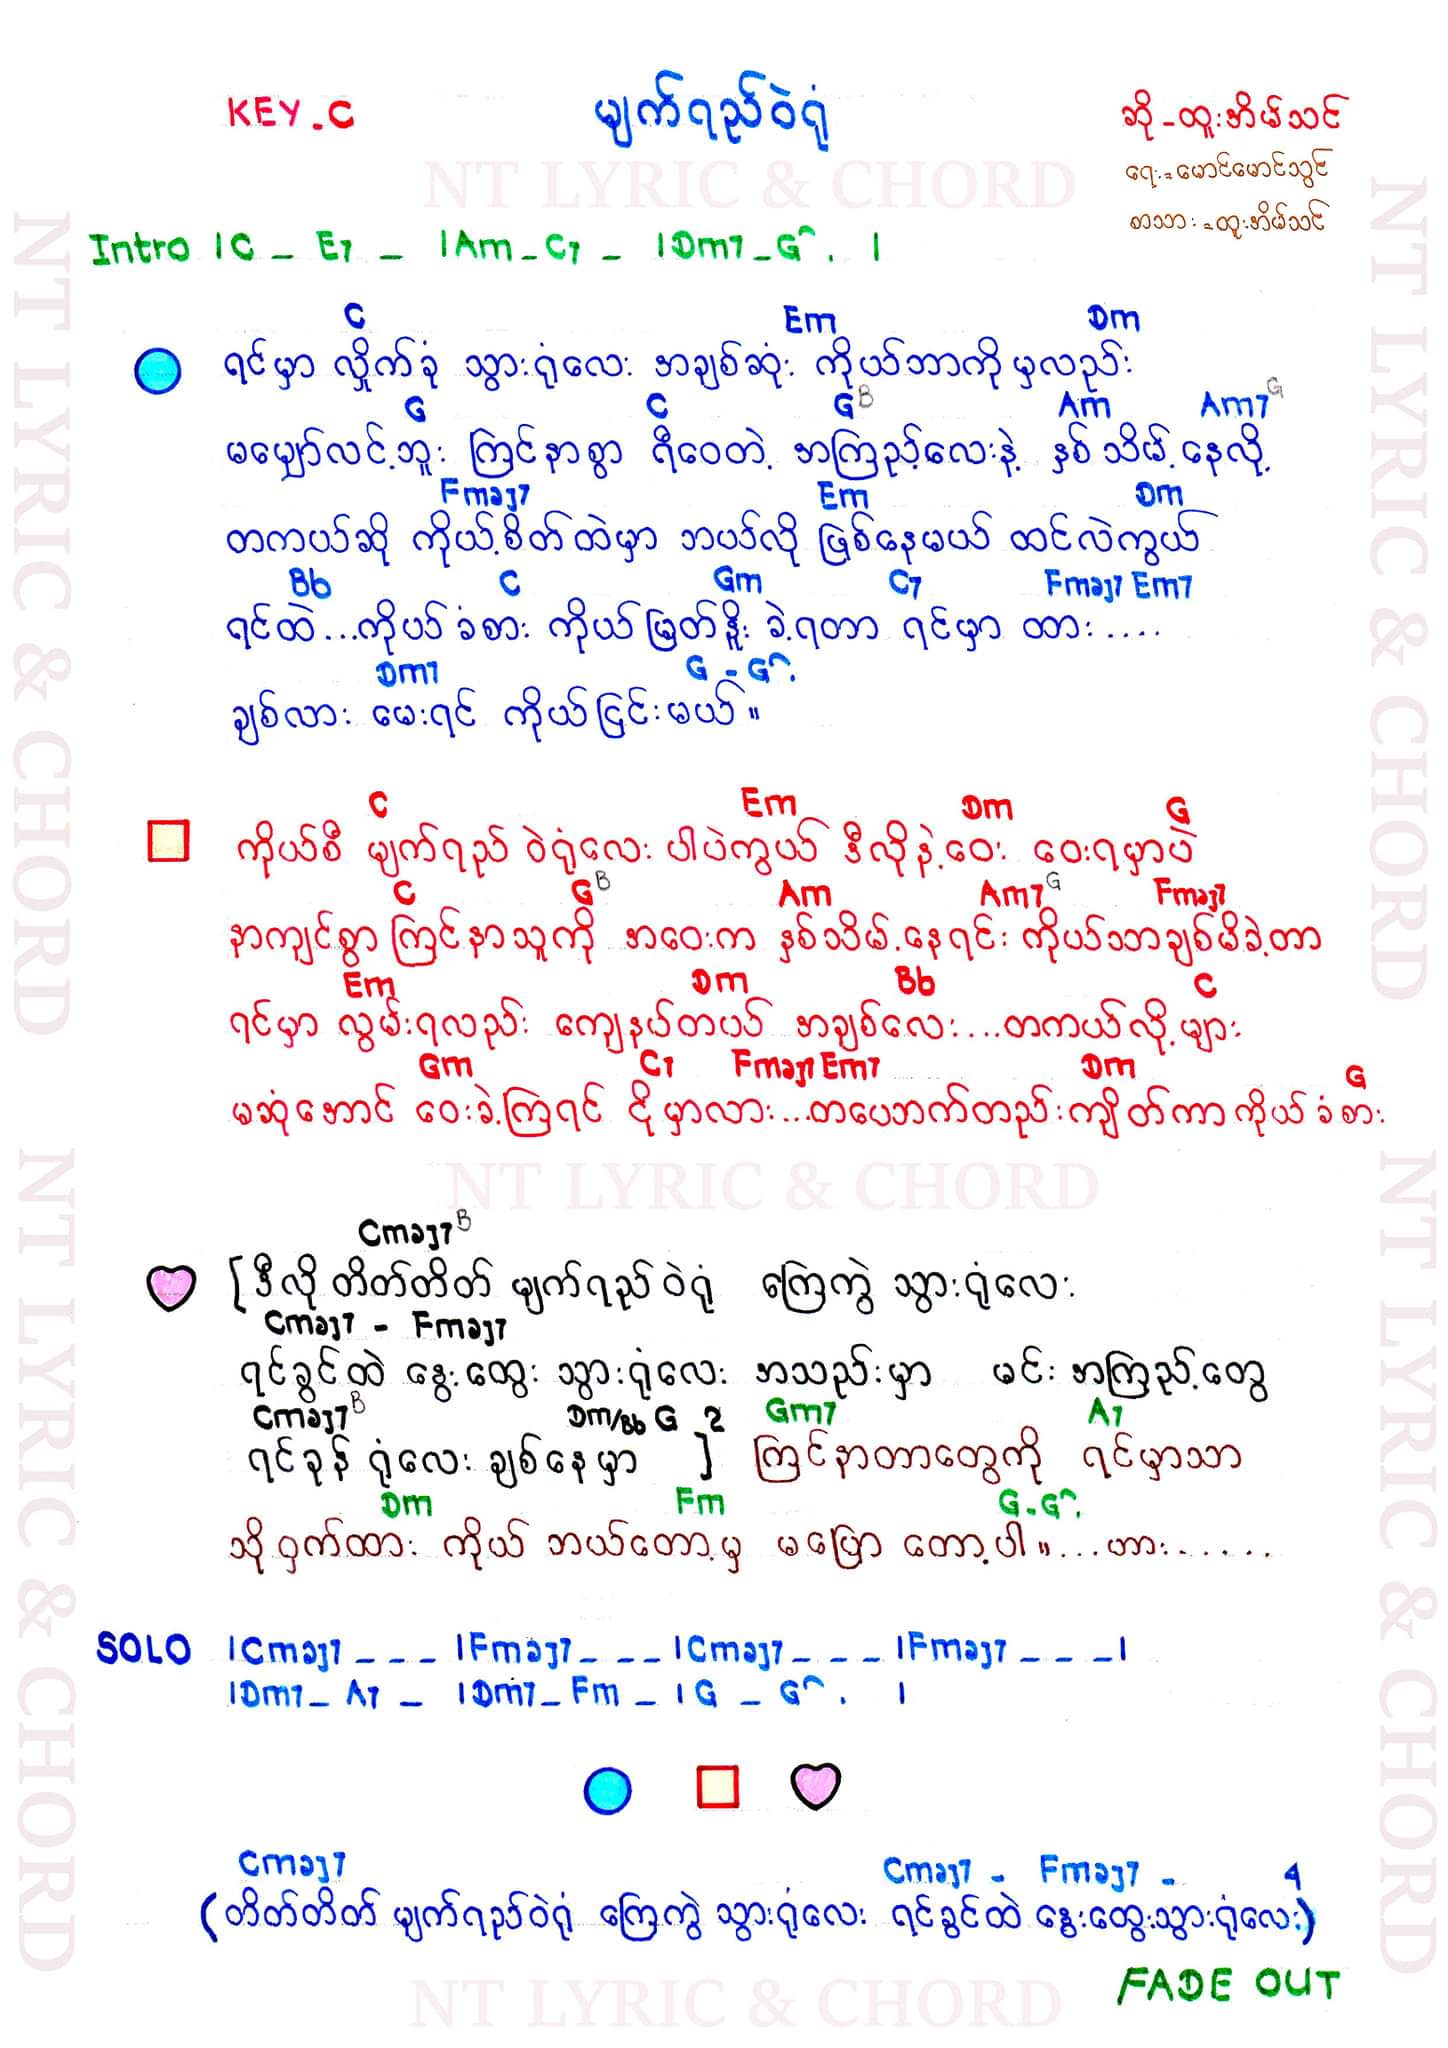 KEY - C
မျက်ရည်ဝဲရုံ
ဆို - ထူးအိမ်သင်
ရေး = မောင်မောင်သွင်
စာသား = ထူးအိမ်သင်
NT LYRIC & CHORD
Intro | C _ E7 _ | Am _ C7 _ | Dm7 _ G^ . |
C Em Dm
ရင်မှာ လှိုက်ခုံ သွားရုံလေး အချစ်ဆုံး ကိုယ်ဘာကိုမှလည်း
G C G B Am Am7 G
မမျှော်လင့်ဘူး ကြင်နာစွာ ရီဝေတဲ့ အကြည့်လေးနဲ့ နှစ်သိမ့်နေလို့
Fmaj7 Em Dm
တကယ်ဆို ကိုယ့်စိတ်ထဲမှာ ဘယ်လို ဖြစ်နေမယ် ထင်လဲကွယ်
Bb C Gm C7 Fmaj7 Em7
ရင်ထဲ...ကိုယ်ခံစား ကိုယ်မြတ်နိုး ခဲ့ရတာ ရင်မှာ ထား....
Dm7 G - G^ .
ချစ်လား မေးရင် ကိုယ်ငြင်းမယ်။
C Em Dm G
ကိုယ်စီ မျက်ရည် ဝဲရုံလေး ပါပဲကွယ် ဒီလိုနဲ့ဝေး ဝေးရမှာပဲ
C G B Am Am7 G Fmaj7
နာကျင်စွာ ကြင်နာသူကို အဝေးက နှစ်သိမ့်နေရင်း ကိုယ်သာချစ်မိခဲ့တာ
Em Dm Bb C
ရင်မှာ လွမ်းရလည်း ကျေနပ်တယ် အချစ်လေး....တကယ်လို့များ
Gm C7 Fmaj7 Em7 Dm G
မဆုံအောင် ဝေးခဲ့ကြရင် ငိုမှာလား...တပေဘက်တည်းကျိတ်ကာ ကိုယ်ခံစား
NT LYRIC & CHORD
Cmaj7 B
[ ဒီလို တိတ်တိတ် မျက်ရည်ဝဲရုံ ကြေကွဲ သွားရုံလေး
Cmaj7 - Fmaj7
ရင်ခွင်ထဲ နွေးထွေး သွားရုံလေး အသည်းမှာ မင်းအကြည့်တွေ
Cmaj7 B Dm/Bb G 2 Gm7 A7
ရင်ခုန်ရုံလေး ချစ်နေမှာ ] ကြင်နာတာတွေကို ရင်မှာသာ
Dm Fm G - G^ .
သိုဝှက်ထား ကိုယ် ဘယ်တော့မှ မပြော တော့ပါ။...ဟား......
SOLO | Cmaj7 _ _ _ | Fmaj7 _ _ _ | Cmaj7 _ _ _ | Fmaj7 _ _ _ |
| Dm7 _ A7 _ | Dm7 _ Fm _ | G _ G^ . |
Cmaj7 Cmaj7 - Fmaj7 - 4
(တိတ်တိတ် မျက်ရည်ဝဲရုံ ကြေကွဲ သွားရုံလေး ရင်ခွင်ထဲ နွေးထွေးသွားရုံလေး)
FADE OUT
NT LYRIC & CHORD
NT LYRIC & CHORD
NT LYRIC & CHORD
NT LYRIC & CHORD
NT LYRIC & CHORD